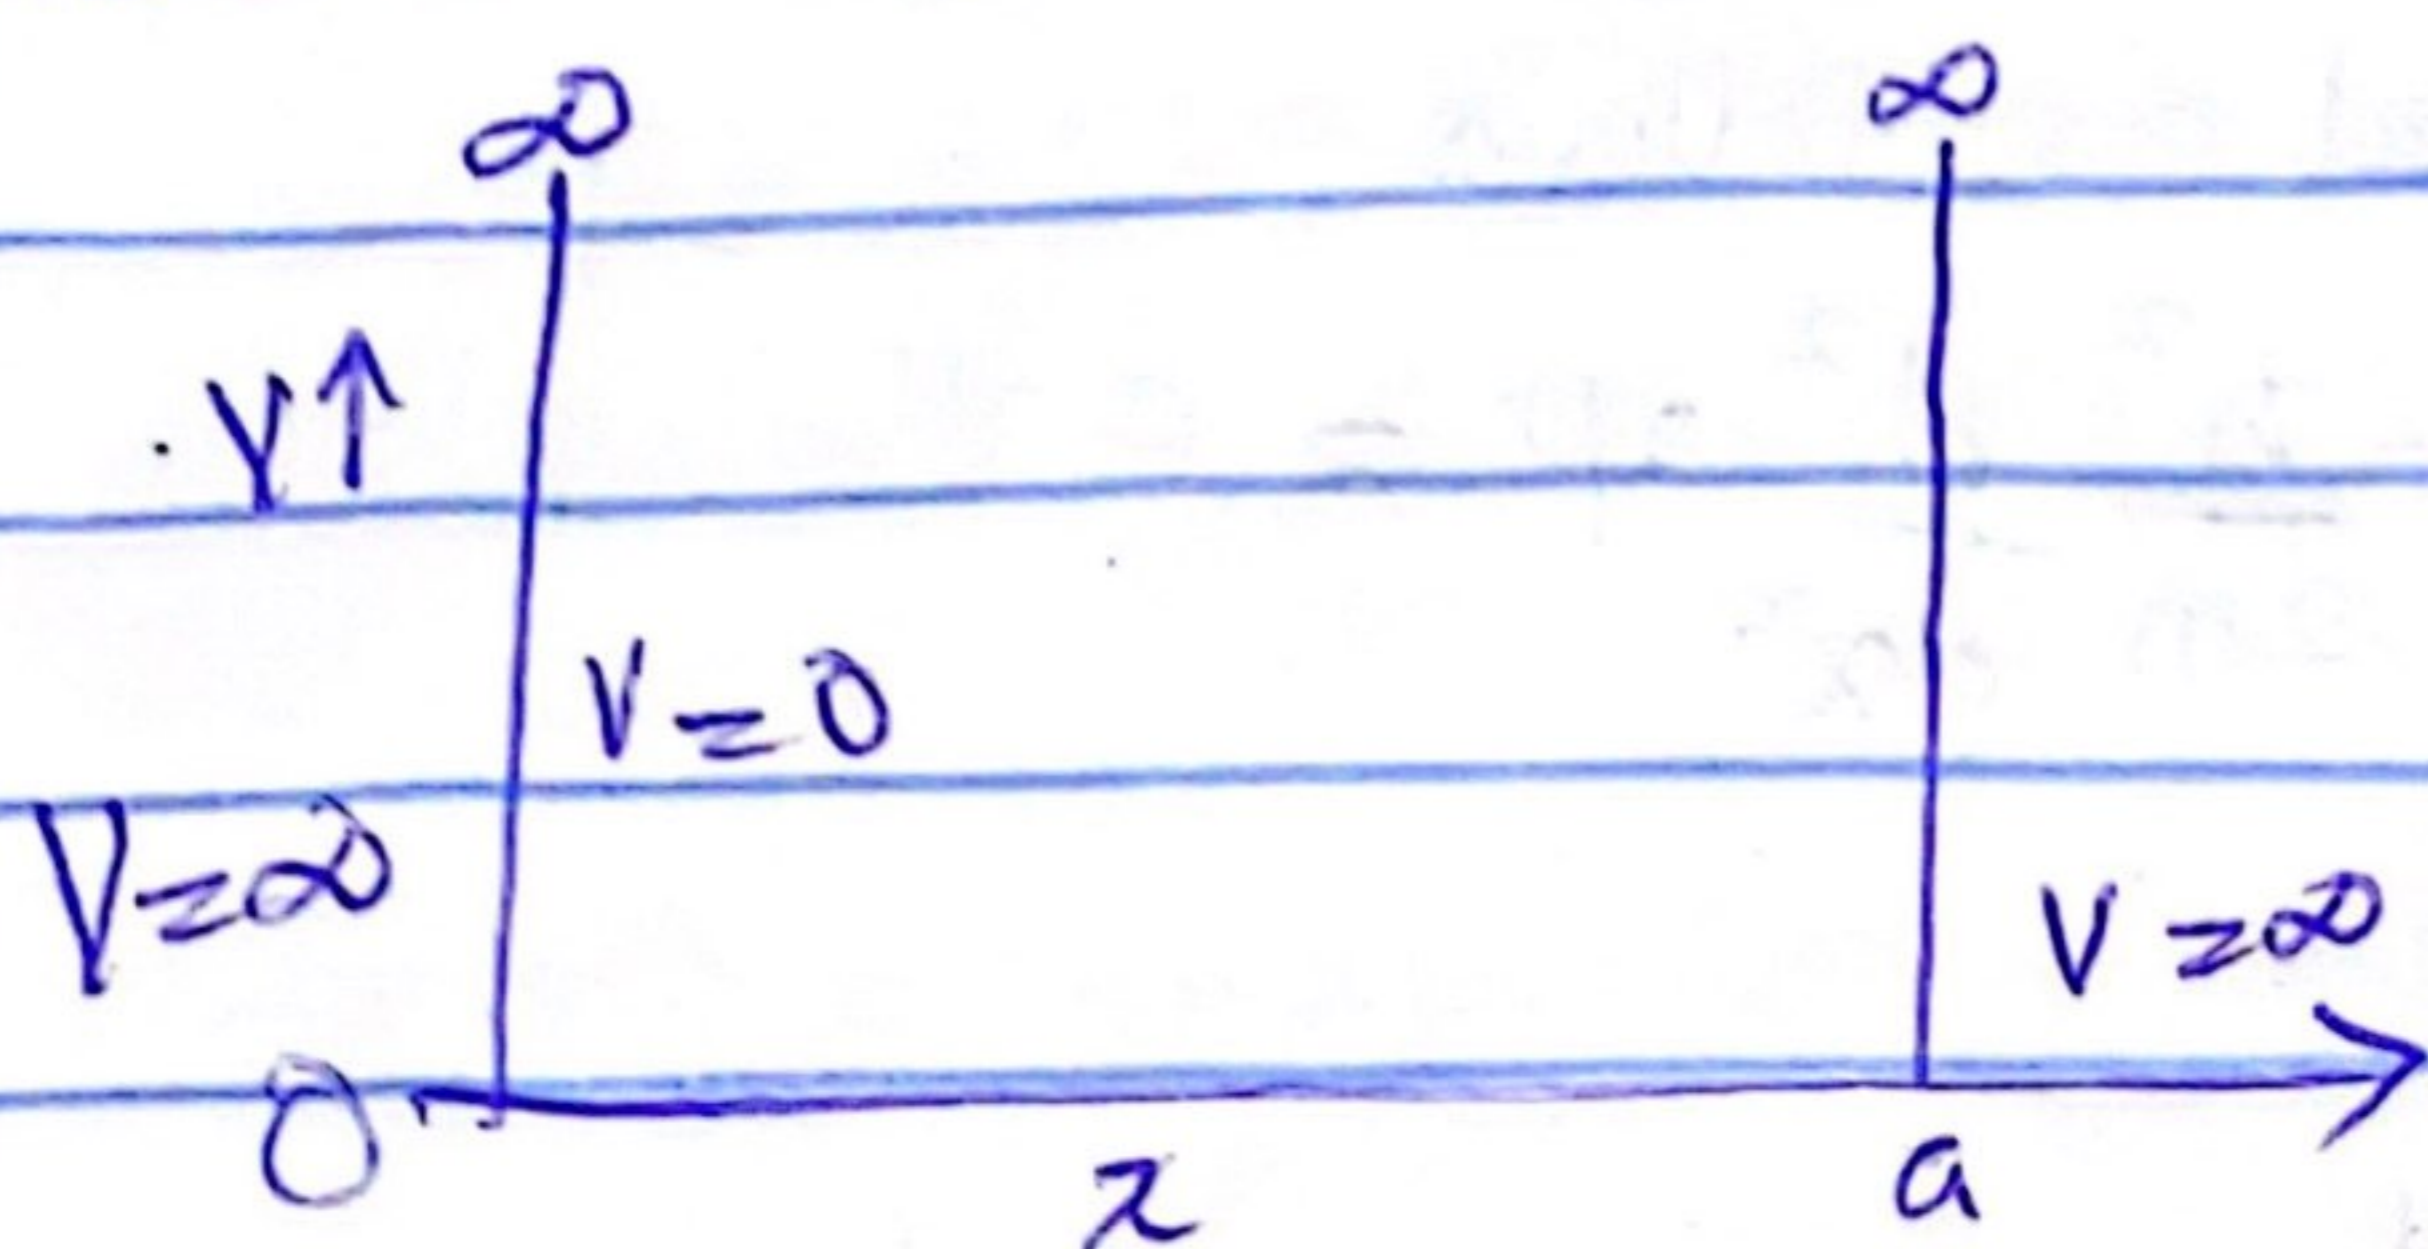 ∞ ∞
V↑
V=0
V=∞ V=∞
0 x a